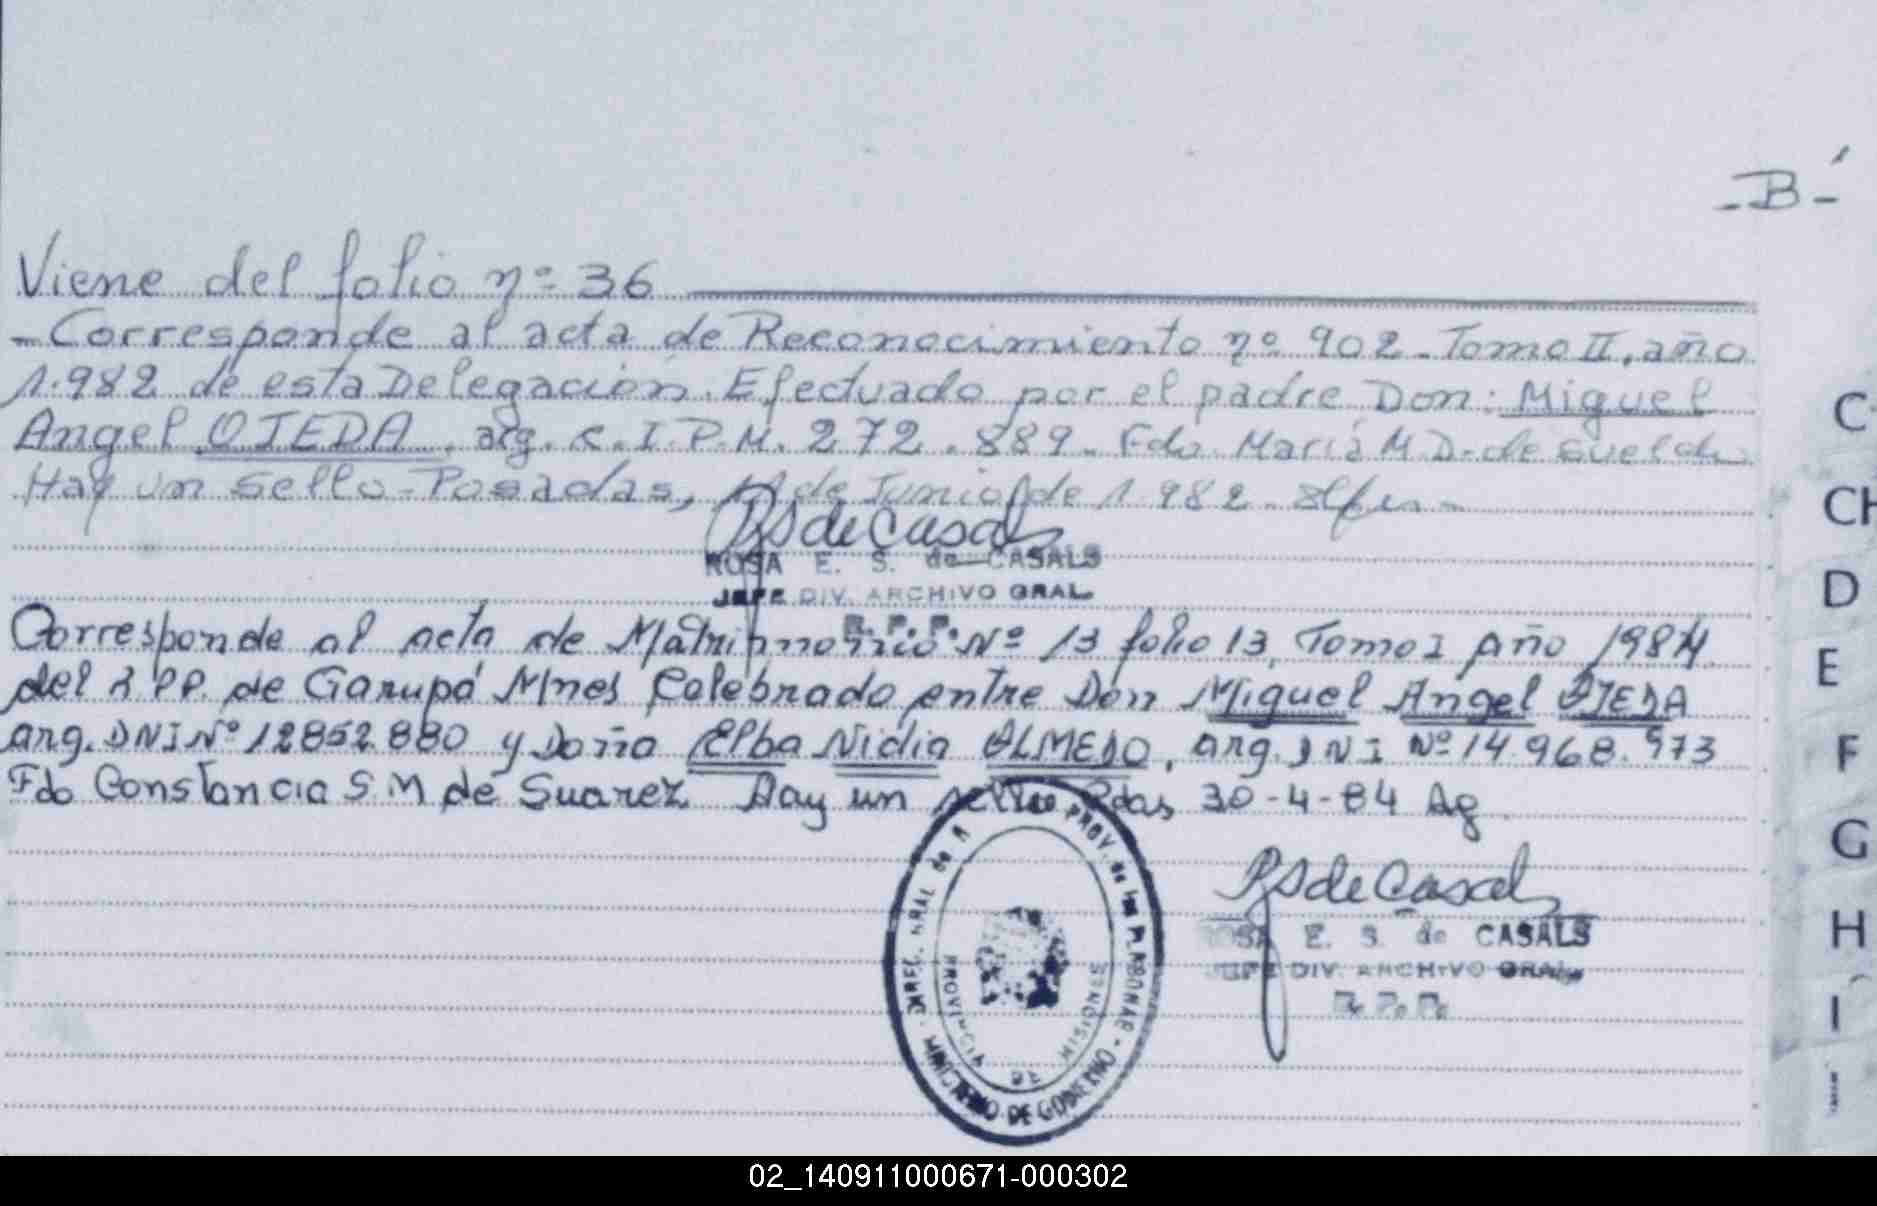 -B-
Viene del folio nº 36
- Corresponde al acta de Reconocimiento nº 902. Tomo II, año
1.982 de esta Delegación. Efectuado por el padre Don: Miguel
Angel OJEDA, arg. C.I.P.M. 272.889. Fdo. Maria M D. de Sueldo
Hay un sello - Posadas, de Junio de 1.982.
RS de Casals
ROSA E. S. de CASALS
JEFE DIV. ARCHIVO GRAL.
R. P. P.
Corresponde al acta de Matrimonio Nº 13 folio 13, Tomo I Año 1984
del R PP. de Garupá Mnes Celebrado entre Don Miguel Angel OJEDA
arg. DNI Nº 12852.880 y Doña Elba Nidia OLMEDO, arg. DNI Nº 14.968.973
Fdo Constancia S. M de Suarez Hay un sello Pdas, 30-4-84 Ag
RS de Casals
ROSA E. S. de CASALS
JEFE DIV. ARCHIVO GRAL.
R. P. P.
DIREC. GRAL de PROV. de las PERSONAS - MINISTERIO DE GOBIERNO
PROVINCIA DE MISIONES
C
CH
D
E
F
G
H
I
02_140911000671-000302